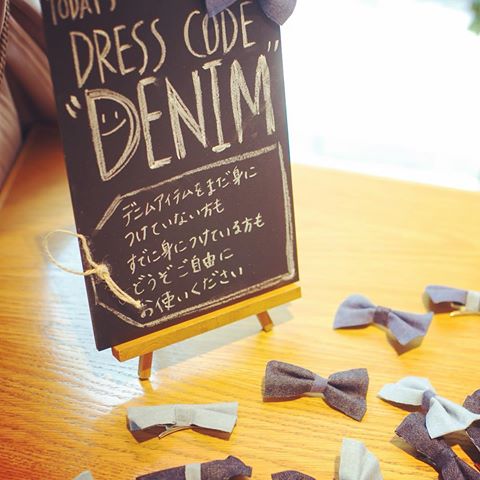 TODAY'S
DRESS CODE
"DENIM"
デニムアイテムをまだ身に
つけていない方も
すでに身につけている方も
どうぞご自由に
お使いください